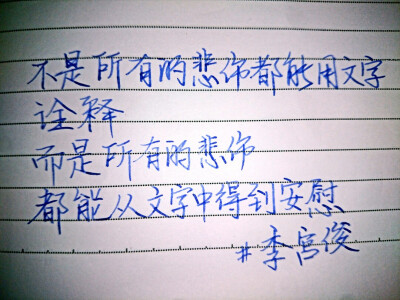 不是所有的悲伤都能用文字
诠释
而是所有的悲伤
都能从文字中得到安慰
#李宫俊